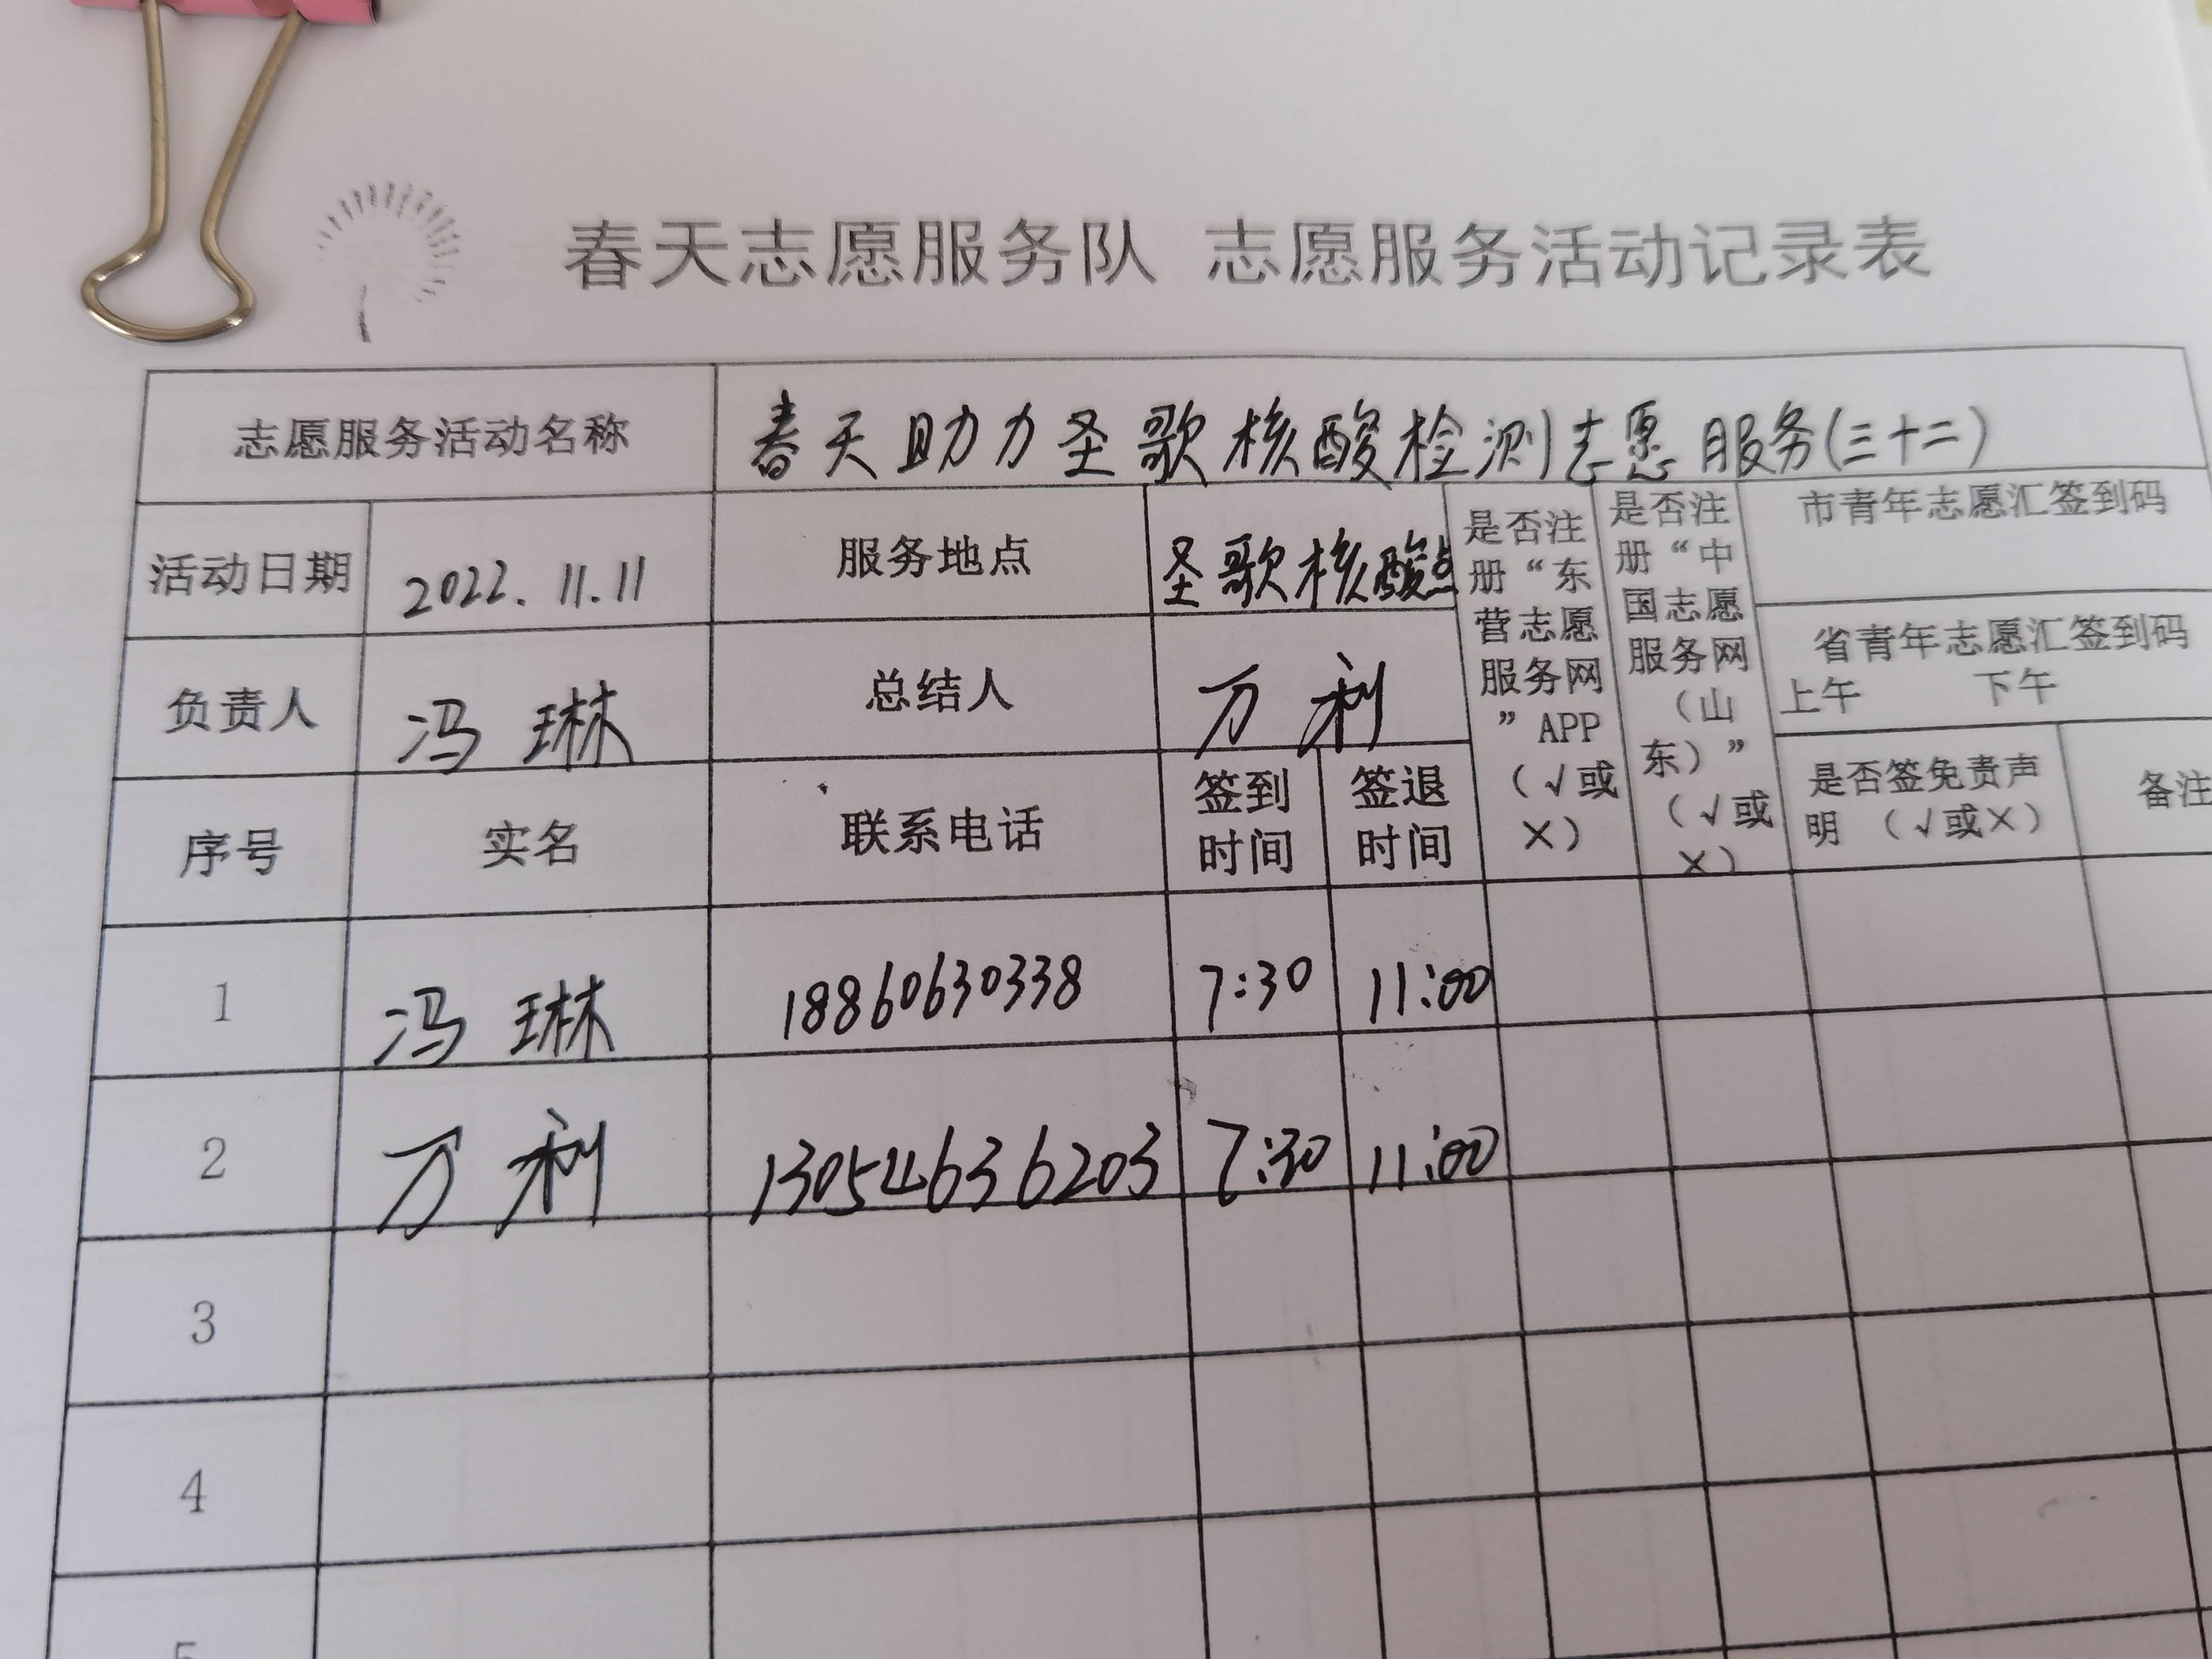 春天志愿服务队 志愿服务活动记录表
志愿服务活动名称 春天助力圣歌核酸检测志愿服务(三十二)
活动日期 2022.11.11 服务地点 圣歌核酸点
负责人 冯琳 总结人 万利
是否注
册“东
营志愿
服务网
”APP
（√或
×）
是否注
册“中
国志愿
服务网
（山
东）”
（√或
×）
市青年志愿汇签到码
省青年志愿汇签到码
上午 下午
序号 实名 联系电话
签到
时间
签退
时间
是否签免责声
明 （√或×）
备注
1 冯琳 18860630338 7:30 11:00
2 万利 13054636203 7:30 11:00
3
4
5